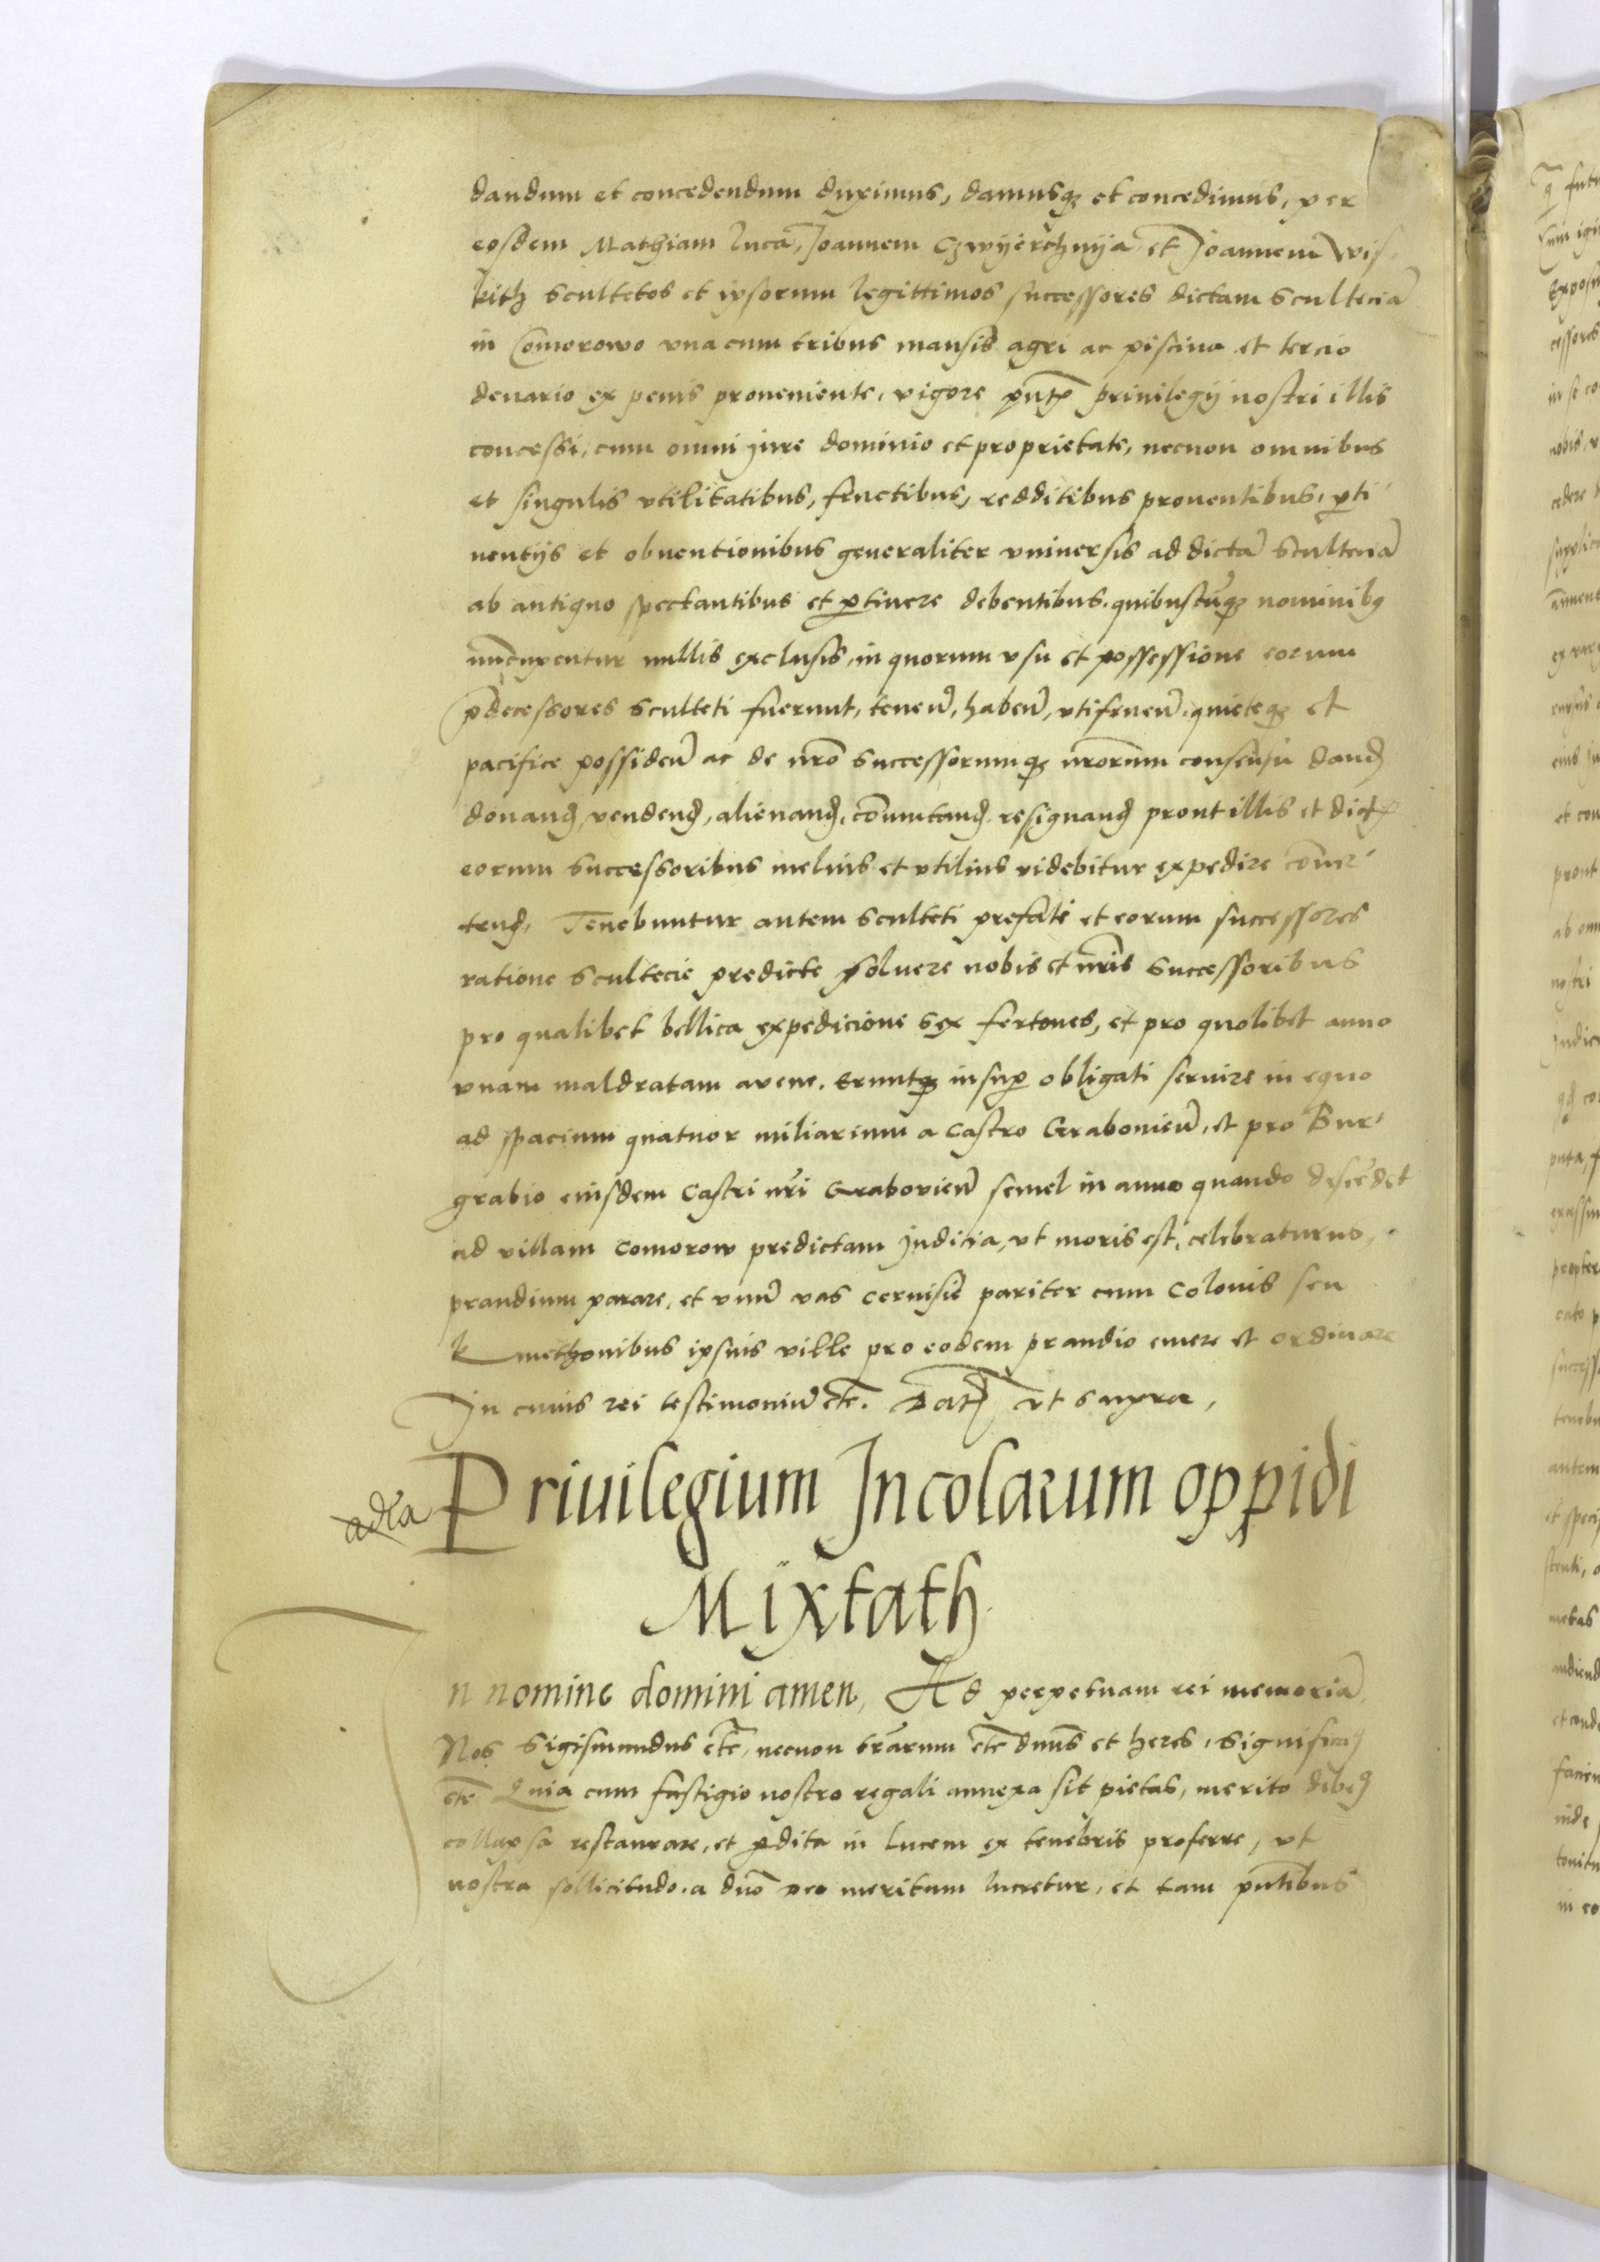 dandum et concedendum duximus, damusq et concedimus, per
eosdem Mathiam lucā, Joannem Czwyerchnya et Joannem Wis
kith scultetos et ipsorum legittimos successores dictam sculteciā
in Comorowo vna cum tribus mansis agri ac piscina et tercio
denario ex penis proueniente, vigore pntz priuilegij nostri illis
concessi, cum omni jure dominio et proprietate, necnon omnibus
et singulis vtilitatibus, fructibus, redditibus prouentibus, pti
nentijs et obuentionibus generaliter vniuersis ad dictā sculteciā
ab antiquo spectantibus et ptinere debentibus. quibuscūq nominibq
nūcupentur nullis exclusis, in quorum vsu et possessione eorum
pdecessores sculteti fuerunt, teneñ, habeñ, vtifrueñ. quieteq et
pacifice possideñ ac de nrō successorumq nrorum consensu dand
donand, vendend, alienand, cōmutand. resignand prout illis et dict
eorum successoribus melius et vtilius videbitur expedire cōuer
tend, Tenebuntur autem sculteti prefati et eorum successores
ratione scultecie predicte psoluere nobis et nrīs successoribus
pro qualibet bellica expedicione sex fertones, et pro quolibet anno
vnam maldratam avene. Eruntq insup obligati seruire in equo
ad spacium quatuor miliarium a castro Grabouieñ, et pro Bur
grabio eiusdem castri nrī Grabovieñ semel in anno quando descēdet
ad villam comorow predictam judicia, vt moris est, celebraturus,
prandium parare, et vnū vas ceruisie pariter cum colonis seu
kmethonibus ipsius ville pro eodem prandio emere et ordinare
In cuius rei testimoniū etc. Dat vt supra,
Priuilegium Incolarum oppidi
Mixtath
In nomine domini amen, Ad perpetuam rei memoriā
Nos Sigismundus etc, necnon trārum etc dnūs et heres, significa
etc Quia cum fastigio nostro regali annexa sit pietas, merito debe
collapsa restaurare, et pdita in lucem ex tenebris proferre, vt
nostra sollicitudo. a dnō deo meritum lucretur, et tam pntibus